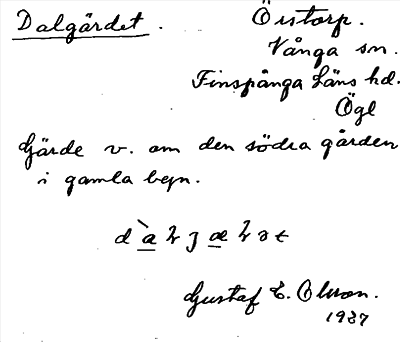 Dalgärdet. Öristorp.
Vånga sn.
Finspånga läns hd.
Ögl
Gärde v. om den södra gården
i gamla byn.
Gustaf E. Olsson.
1937